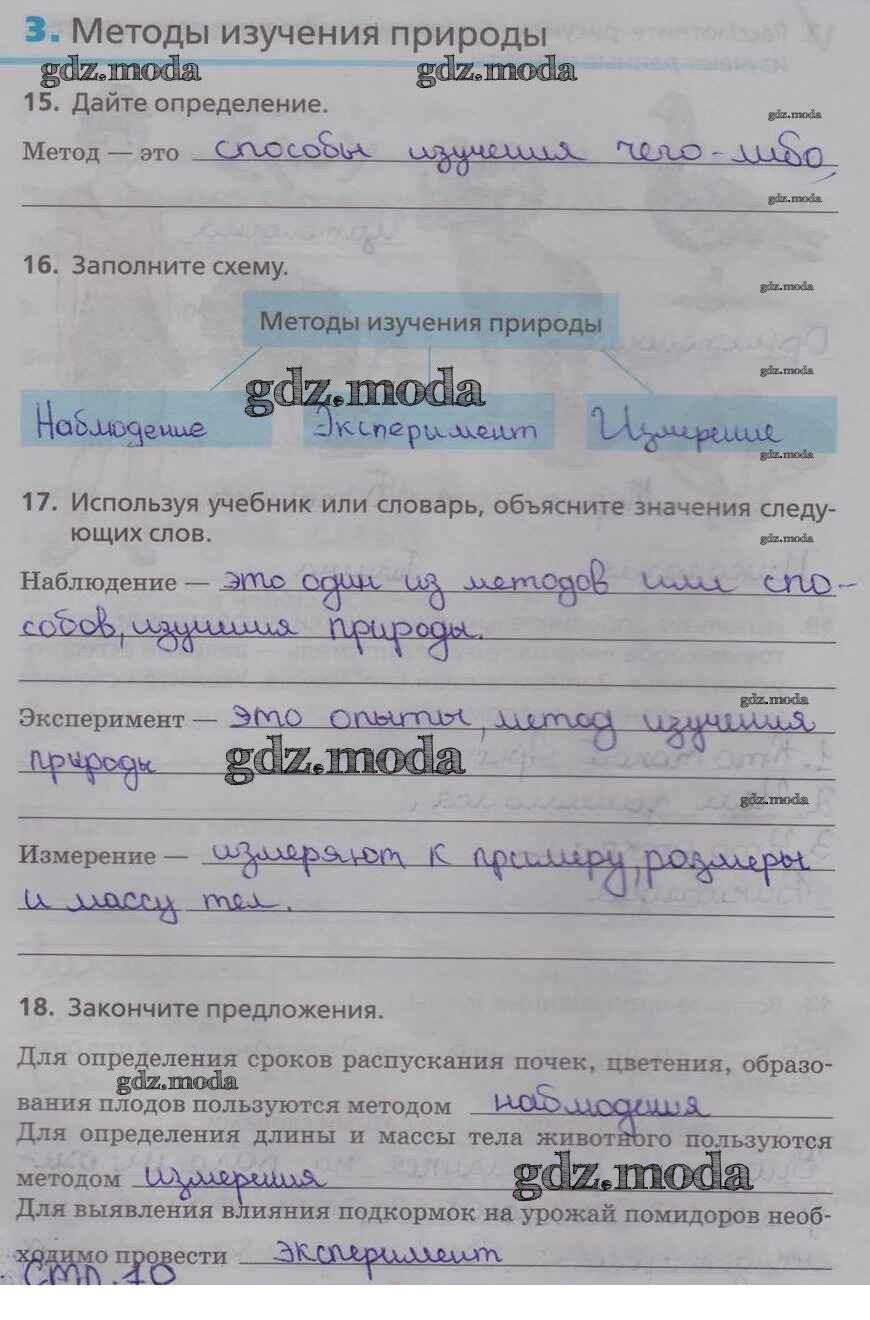 3. Методы изучения природы
gdz.moda gdz.moda
15. Дайте определение.
gdz.moda
Метод — это способы изучения чего-либо
gdz.moda
16. Заполните схему.
gdz.moda
Методы изучения природы
gdz.moda
gdz.moda
Наблюдение Эксперимент Измерение
gdz.moda
17. Используя учебник или словарь, объясните значения следу-
ющих слов.
gdz.moda
Наблюдение — это один из методов или спо-
собов, изучения природы.
gdz.moda
Эксперимент — это опыты, метод изучения
природы
gdz.moda
gdz.moda
Измерение — измеряют к примеру, размеры
и массу тел.
18. Закончите предложения.
Для определения сроков распускания почек, цветения, образо-
gdz.moda
вания плодов пользуются методом наблюдения
Для определения длины и массы тела животного пользуются
методом измерения
gdz.moda
Для выявления влияния подкормок на урожай помидоров необ-
ходимо провести эксперимент
стр. 10